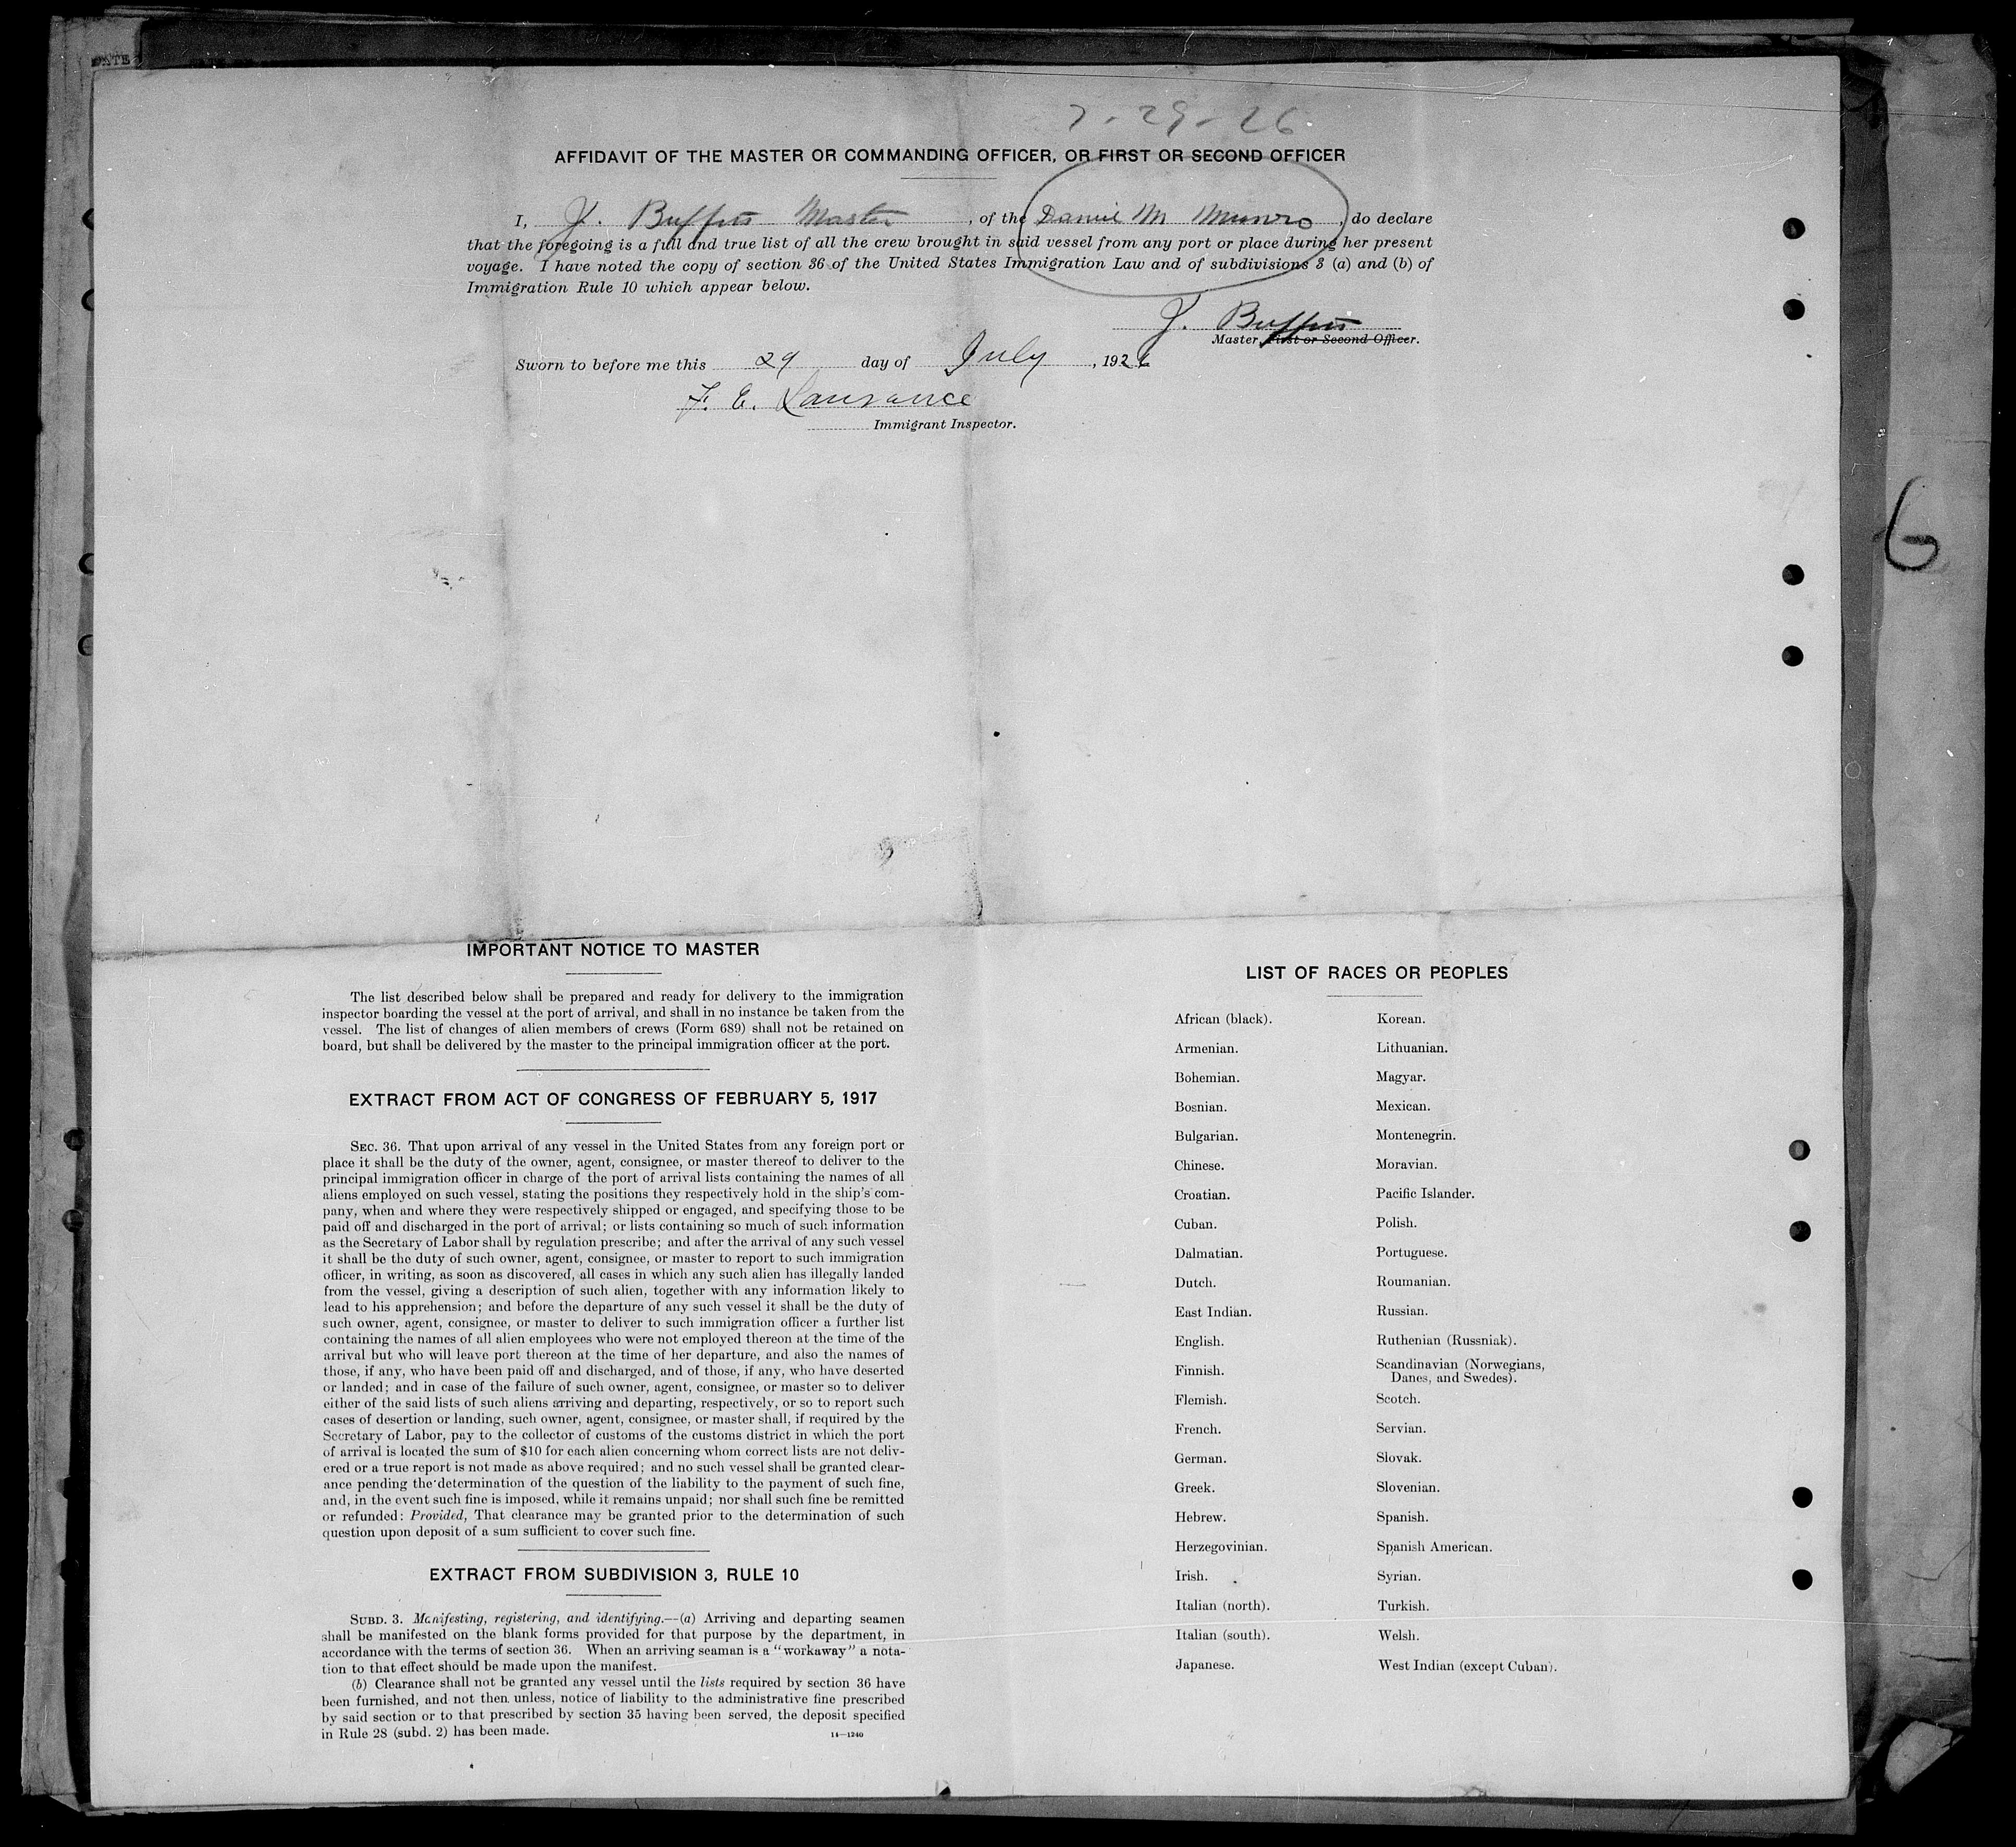 DATE
7-29-26
AFFIDAVIT OF THE MASTER OR COMMANDING OFFICER, OR FIRST OR SECOND OFFICER
I, J. Buffett Master, of the Daniel M Munro, do declare
that the foregoing is a full and true list of all the crew brought in said vessel from any port or place during her present
voyage. I have noted the copy of section 36 of the United States Immigration Law and of subdivisions 3 (a) and (b) of
Immigration Rule 10 which appear below.
J. Buffett
Master, First or Second Officer.
Sworn to before me this 29 day of July, 1926
F. E. Lawrance
Immigrant Inspector.
6
IMPORTANT NOTICE TO MASTER
The list described below shall be prepared and ready for delivery to the immigration
inspector boarding the vessel at the port of arrival, and shall in no instance be taken from the
vessel. The list of changes of alien members of crews (Form 689) shall not be retained on
board, but shall be delivered by the master to the principal immigration officer at the port.
EXTRACT FROM ACT OF CONGRESS OF FEBRUARY 5, 1917
SEC. 36. That upon arrival of any vessel in the United States from any foreign port or
place it shall be the duty of the owner, agent, consignee, or master thereof to deliver to the
principal immigration officer in charge of the port of arrival lists containing the names of all
aliens employed on such vessel, stating the positions they respectively hold in the ship's com-
pany, when and where they were respectively shipped or engaged, and specifying those to be
paid off and discharged in the port of arrival; or lists containing so much of such information
as the Secretary of Labor shall by regulation prescribe; and after the arrival of any such vessel
it shall be the duty of such owner, agent, consignee, or master to report to such immigration
officer, in writing, as soon as discovered, all cases in which any such alien has illegally landed
from the vessel, giving a description of such alien, together with any information likely to
lead to his apprehension; and before the departure of any such vessel it shall be the duty of
such owner, agent, consignee, or master to deliver to such immigration officer a further list
containing the names of all alien employees who were not employed thereon at the time of the
arrival but who will leave port thereon at the time of her departure, and also the names of
those, if any, who have been paid off and discharged, and of those, if any, who have deserted
or landed; and in case of the failure of such owner, agent, consignee, or master so to deliver
either of the said lists of such aliens arriving and departing, respectively, or so to report such
cases of desertion or landing, such owner, agent, consignee, or master shall, if required by the
Secretary of Labor, pay to the collector of customs of the customs district in which the port
of arrival is located the sum of $10 for each alien concerning whom correct lists are not deliv-
ered or a true report is not made as above required; and no such vessel shall be granted clear-
ance pending the determination of the question of the liability to the payment of such fine,
and, in the event such fine is imposed, while it remains unpaid; nor shall such fine be remitted
or refunded: Provided, That clearance may be granted prior to the determination of such
question upon deposit of a sum sufficient to cover such fine.
EXTRACT FROM SUBDIVISION 3, RULE 10
SUBD. 3. Manifesting, registering, and identifying.—(a) Arriving and departing seamen
shall be manifested on the blank forms provided for that purpose by the department, in
accordance with the terms of section 36. When an arriving seaman is a "workaway" a nota-
tion to that effect should be made upon the manifest.
(b) Clearance shall not be granted any vessel until the lists required by section 36 have
been furnished, and not then unless, notice of liability to the administrative fine prescribed
by said section or to that prescribed by section 35 having been served, the deposit specified
in Rule 28 (subd. 2) has been made.
14—1240
LIST OF RACES OR PEOPLES
African (black).
Armenian.
Bohemian.
Bosnian.
Bulgarian.
Chinese.
Croatian.
Cuban.
Dalmatian.
Dutch.
East Indian.
English.
Finnish.
Flemish.
French.
German.
Greek.
Hebrew.
Herzegovinian.
Irish.
Italian (north).
Italian (south).
Japanese.
Korean.
Lithuanian.
Magyar.
Mexican.
Montenegrin.
Moravian.
Pacific Islander.
Polish.
Portuguese.
Roumanian.
Russian.
Ruthenian (Russniak).
Scandinavian (Norwegians,
Danes, and Swedes).
Scotch.
Servian.
Slovak.
Slovenian.
Spanish.
Spanish American.
Syrian.
Turkish.
Welsh.
West Indian (except Cuban).